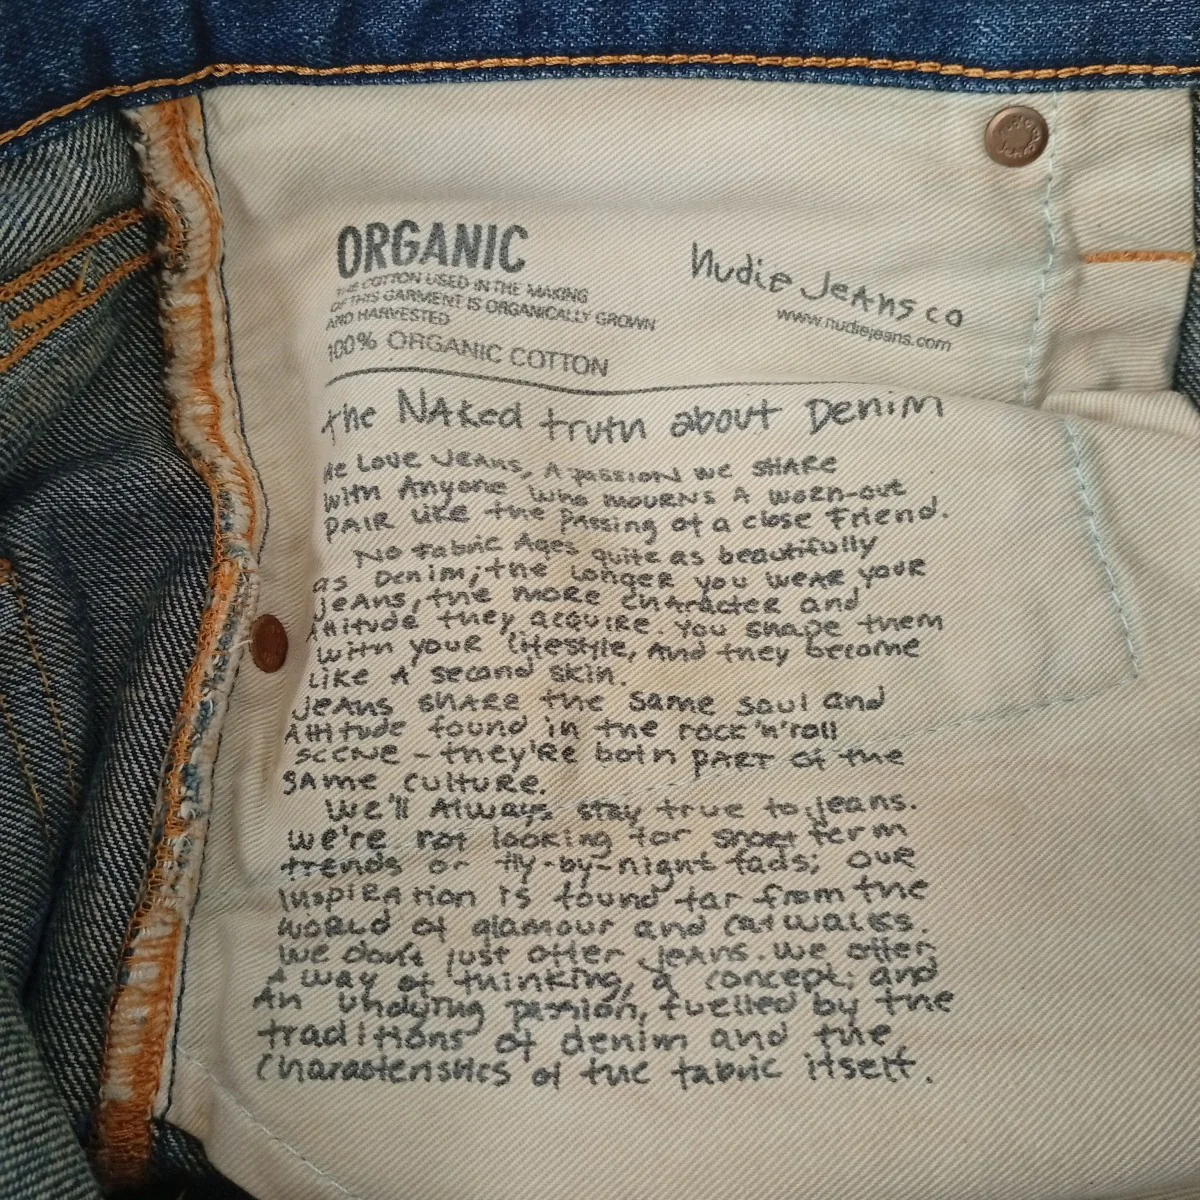 ORGANIC
THE COTTON USED IN THE MAKING
OF THIS GARMENT IS ORGANICALLY GROWN
AND HARVESTED
100% ORGANIC COTTON
Nudie Jeans co
www.nudiejeans.com
the NAked truth about Denim
We Love Jeans, A passion we share
with Anyone who mourns A worn-out
pair like the passing of a close friend.
No fabric Ages quite as beautifully
as Denim; the longer you wear your
jeans, the more character and
Attitude they acquire. You shape them
with your lifestyle, And they become
like A second skin.
Jeans share the same soul and
Attitude found in the rock'n'roll
scene - they're both part of the
same culture.
We'll Always stay true to jeans.
We're not looking for short term
trends or fly-by-night fads; our
inspiration is found far from the
world of glamour and catwalks.
We don't just offer jeans. We offer
A way of thinking, a concept; and
An undying passion, fuelled by the
traditions of denim and the
characteristics of the fabric itself.